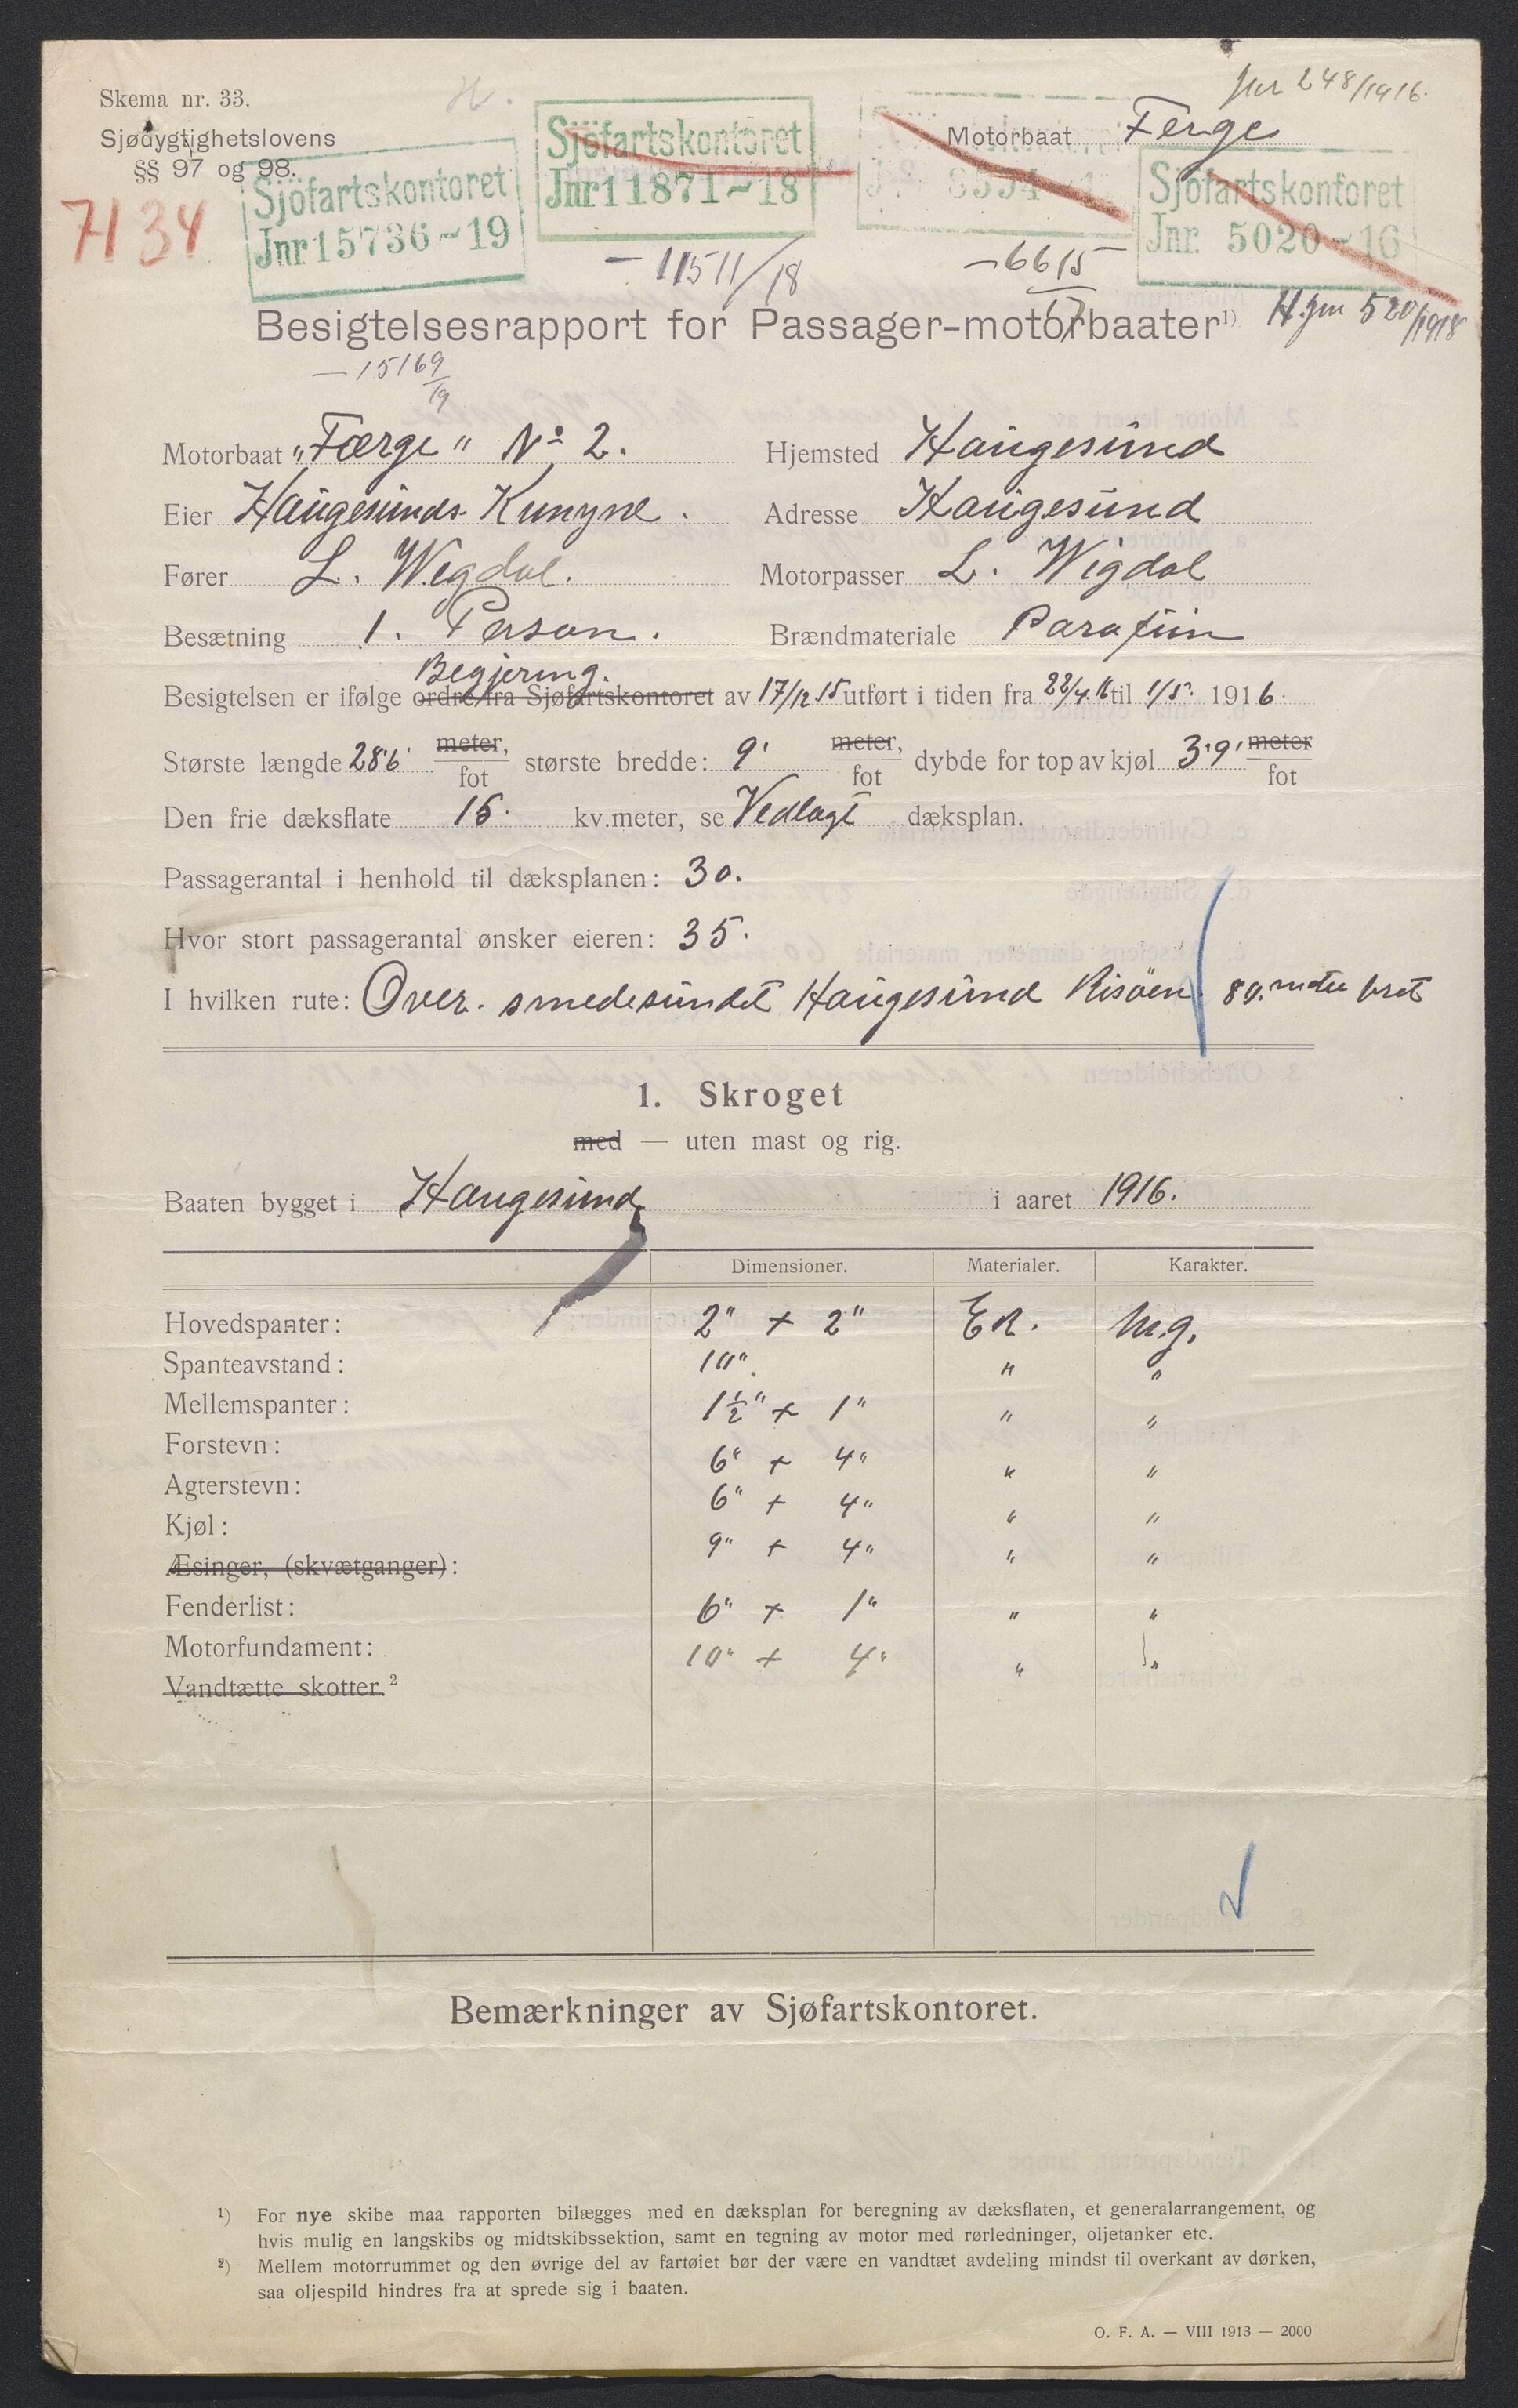 Skema nr. 33.
Sjødygtighetslovens
§§ 97 og 98.
Jnr 248/1916.
Motorbaat Ferge
7134
Sjöfartskontoret
Jnr 15736-19
Sjöfartskontoret
Jnr 11871-18
Sjöfartskontoret
Jnr. 5020-16
- 11511/18
- 6615/17
H.jnr 520/1918
Besigtelsesrapport for Passager-motorbaater 1)
- 15169/19
Motorbaat "Færge" No 2. Hjemsted Haugesund
Eier Haugesunds Adresse Haugesund
Fører L. Wigdal. Motorpasser L. Wigdal
Besætning 1. Person. Brændmateriale Parafin
Begjering.
Besigtelsen er ifølge ordre fra Sjøfartskontoret av 17/12 15 utført i tiden fra 22/4.16 til 1/5. 1916.
Største længde 28'6' meter, fot største bredde: 9' meter, fot dybde for top av kjøl 3'9' meter fot
Den frie dæksflate 15. kv.meter, se Vedlagt dæksplan.
Passagerantal i henhold til dæksplanen: 30.
Hvor stort passagerantal ønsker eieren: 35.
I hvilken rute: Over. smedesundet Haugesund Risöen. 80. meter bret
1. Skroget
med — uten mast og rig.
Baaten bygget i Haugesund i aaret 1916.
Dimensioner. Materialer. Karakter.
Hovedspanter: 2" + 2" Ek. M.g.
Spanteavstand: 10". " "
Mellemspanter: 1½" + 1" " "
Forstevn: 6" + 4" " "
Agterstevn: 6" + 4" " "
Kjøl: 9" + 4" " "
Æsinger, (skvætganger):
Fenderlist: 6" + 1" " "
Motorfundament: 10" + 4" " "
Vandtætte skotter. 2
Bemærkninger av Sjøfartskontoret.
1) For nye skibe maa rapporten bilægges med en dæksplan for beregning av dæksflaten, et generalarrangement, og
hvis mulig en langskibs og midtskibssektion, samt en tegning av motor med rørledninger, oljetanker etc.
2) Mellem motorrummet og den øvrige del av fartøiet bør der være en vandtæt avdeling mindst til overkant av dørken,
saa oljespild hindres fra at sprede sig i baaten.
O. F. A. — VIII 1913 — 2000